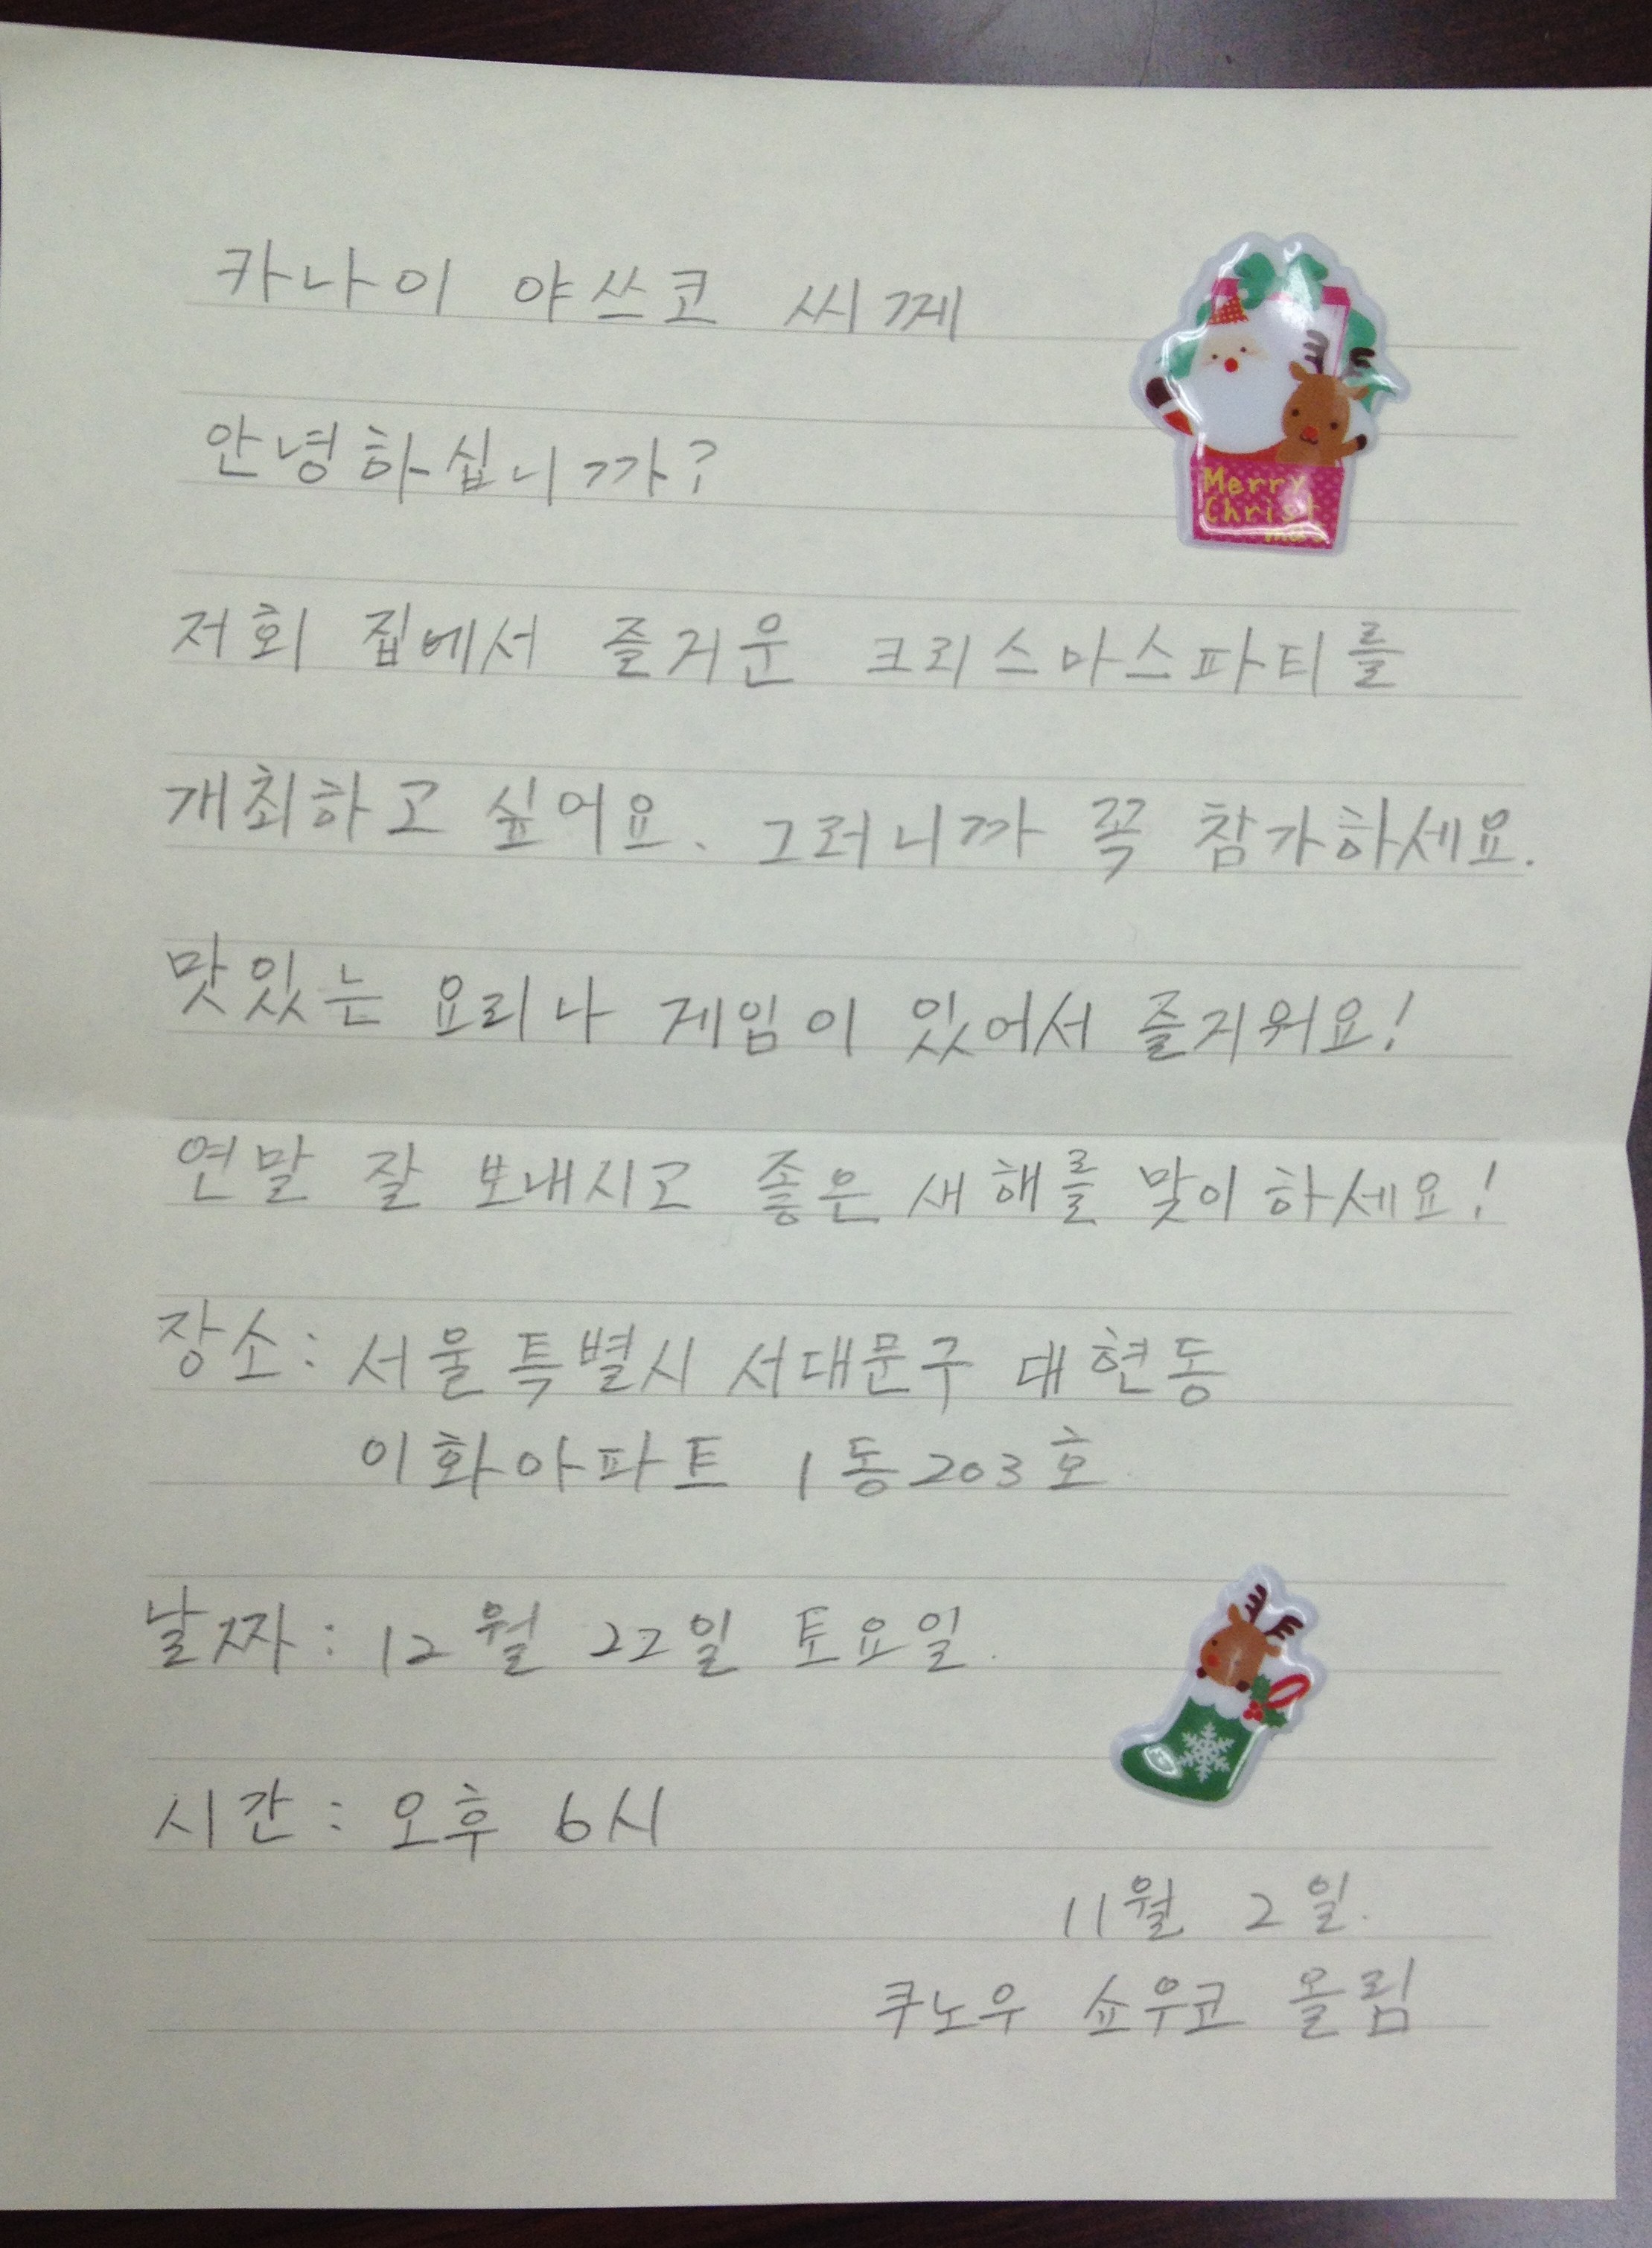 카나이 야쓰코 씨께
Merry
Christ
mas
안녕하십니까?
저희 집에서 즐거운 크리스마스파티를
개최하고 싶어요. 그러니까 꼭 참가하세요.
맛있는 요리나 게임이 있어서 즐거워요!
연말 잘 보내시고 좋은 새해를 맞이하세요!
장소: 서울특별시 서대문구 대현동
이화아파트 1동203호
날짜: 12월 22일 토요일.
시간: 오후 6시
11월 2일.
쿠노우 쇼우코 올림